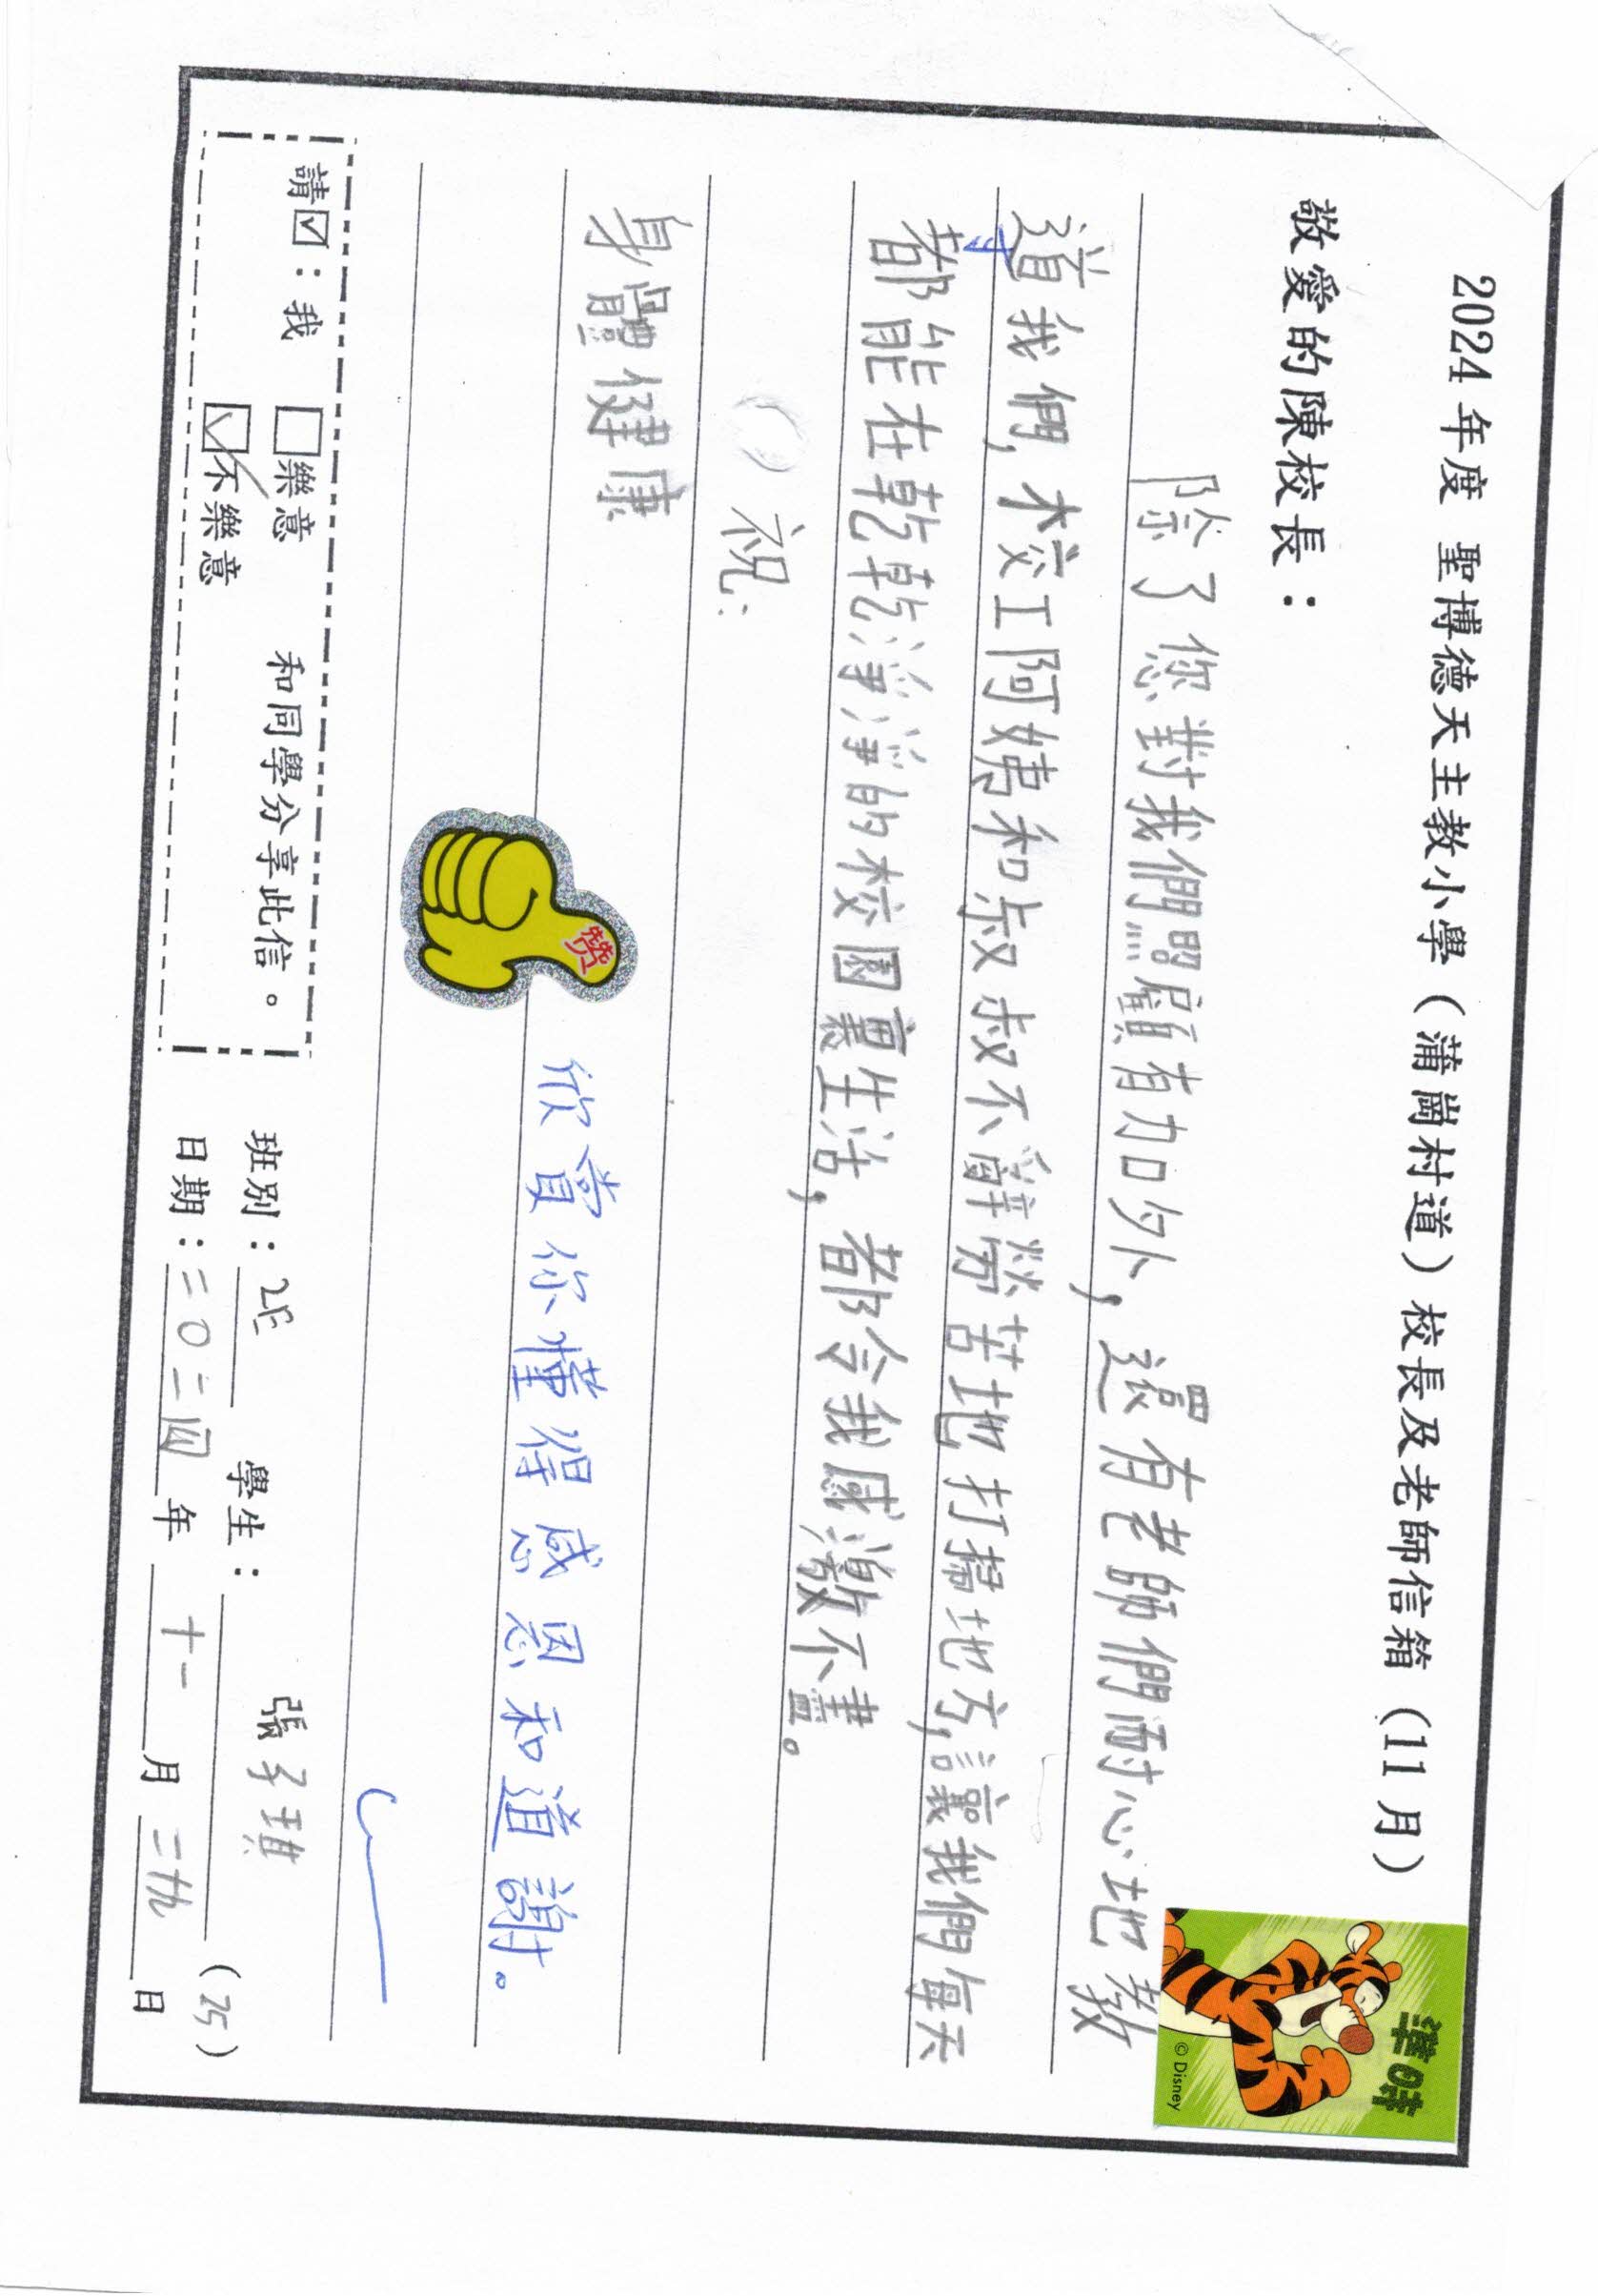 2024 年度 聖博德天主教小學（蒲崗村道）校長及老師信箱（11 月）
準時
© Disney
敬愛的陳校長：
除了您對我們照顧有加外，還有老師們耐心地教
道我們，校工阿姨和叔叔不辭勞苦地打掃地方，讓我們每天
寸
都能在乾乾淨淨的校園裏生活，都令我感激不盡。
祝：
身體健康
赞
欣賞你懂得感恩和道謝。
請☑：我 □樂意 和同學分享此信。
☑不樂意
班別：2E 學生：張子琪（25）
日期：二〇二四年十一月二十九日